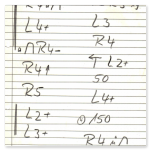 L4+
L3
R4
R4-
L2+
R4
50
R5
L4+
L2+
/150
L3+
R4